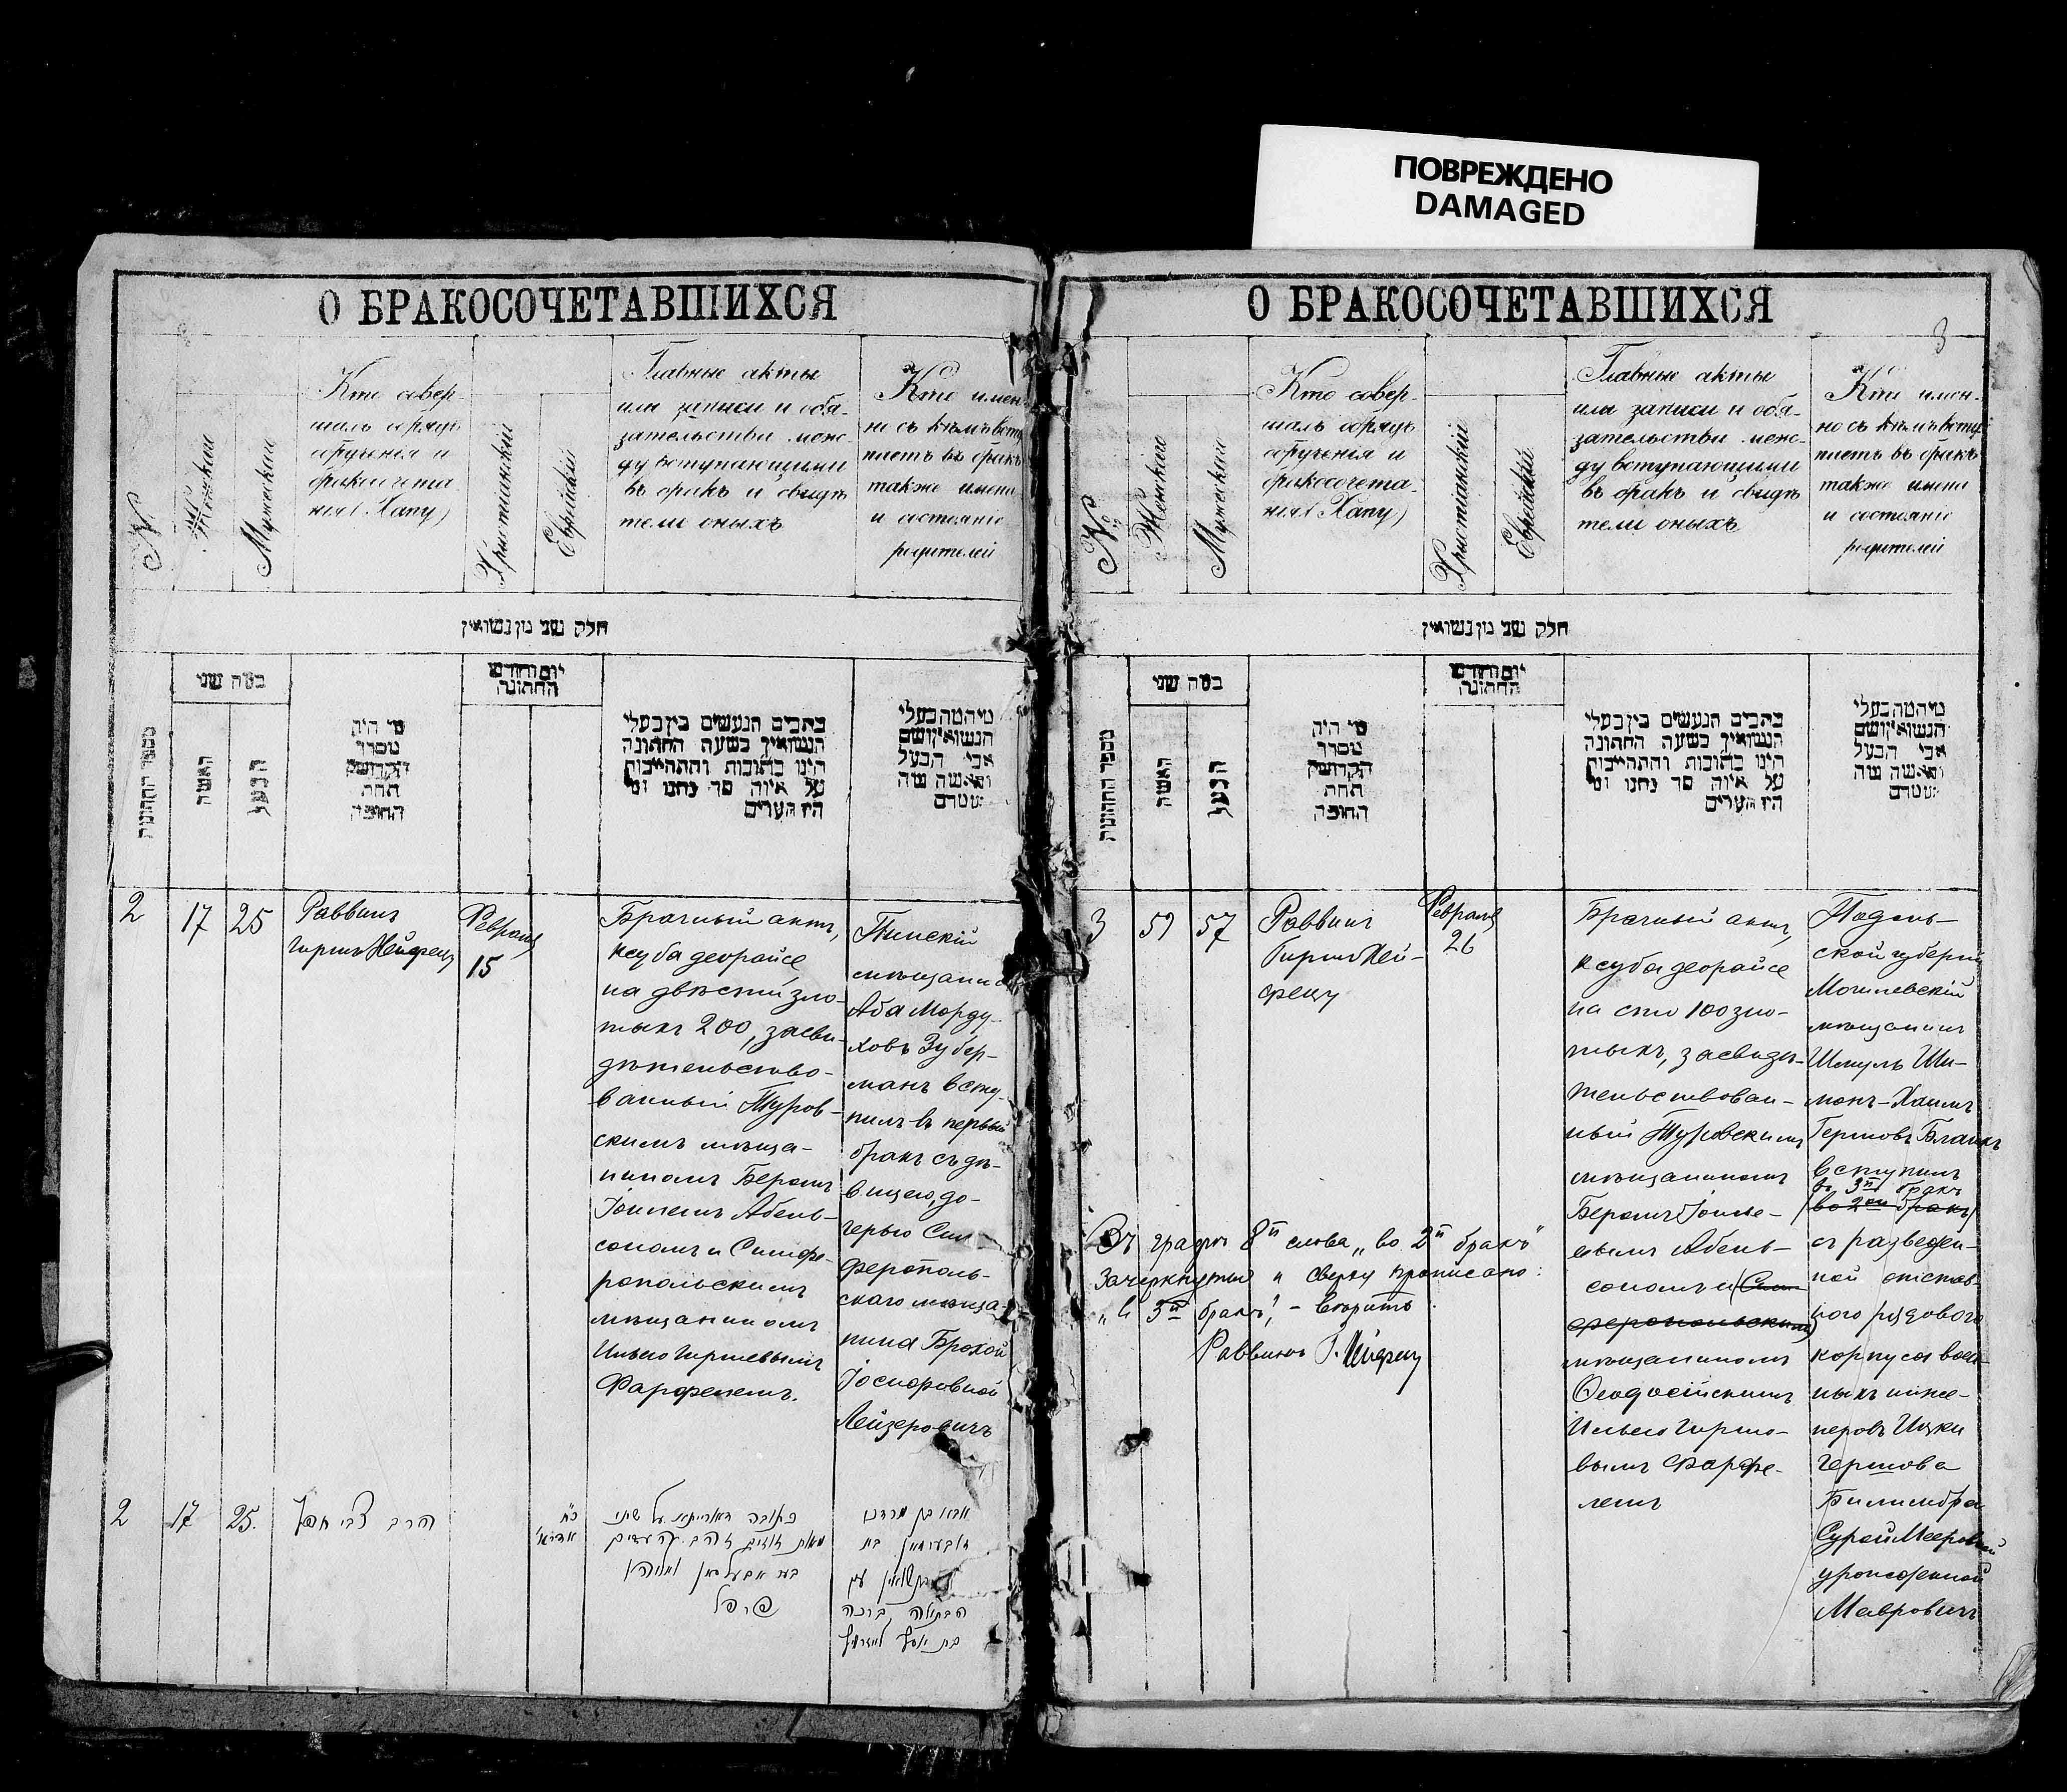 ПОВРЕЖДЕНО
DAMAGED
О БРАКОСОЧЕТАВШИХСЯ
№
Женская
Мужеская
Кто совер-
шалъ обрядъ
обрученія и
бракосочета-
нія (Хапу)
Христіанскій
Еврейскій
Главные акты
или записи и обя-
зательства меж-
ду вступающими
въ бракъ и свидѣ
тели оныхъ
Кто имен-
но съ кѣмъ всту
паетъ въ бракъ
также имена
и состояніе
родителей
חלק שני מן נשואין
מספר החתונות
כמה שני
האשה
הבעל
מי היה
מסדר
הקדושין
תחת
החופה
יום וחודש
החתונה
כתבים הנעשים בין בעלי
הנשואין בשעת החתונה
היינו כתובות והתחייבות
על איזה סך נתנו ומי
היו העדים
מי המה בעלי
הנשואין ושם
אבי הבעל
והאשה מה
מעמדם
2
17
25
Раввинъ
Гиршъ Нейфецъ
Февраля
15
Брачный актъ,
ксуба деорайсе
на двѣсти зло-
тыхъ 200, засви-
дѣтельство-
ванный Туров-
скимъ мѣща-
ниномъ Беромъ
Іоилемъ Абель-
сономъ и Симфе-
ропольскимъ
мѣщаниномъ
Ильею Гиршевымъ
Фарфелемъ.
Пинскій
мѣщанинъ
Аба Морду-
ховъ Зубер-
манъ всту-
пилъ въ первый
бракъ съ дѣ-
вицею, до-
черью Сим
ферополь-
скаго мѣща-
нина Брохой
Іосифовной
Лейзеровичъ
2
17
25.
הרב צבי חפץ
כח
אדר א'
כתובה דאורייתא על שתי
מאות זוזים זהב. העדים
בער אבעלסאן ואליהו
פרפל
אבא בן מרדכי
זובערמאן בא
בנשואין עם
הבתולה ברכה
בת יוסף
О БРАКОСОЧЕТАВШИХСЯ
3
№
Женская
Мужеская
Кто совер-
шалъ обрядъ
обрученія и
бракосочета-
нія (Хапу)
Христіанскій
Еврейскій
Главные акты
или записи и обя-
зательства меж-
ду вступающими
въ бракъ и свидѣ
тели оныхъ
Кто имен-
но съ кѣмъ всту
паетъ въ бракъ
также имена
и состояніе
родителей
חלק שני מן נשואין
מספר החתונות
כמה שני
האשה
הבעל
מי היה
מסדר
הקדושין
תחת
החופה
יום וחודש
החתונה
כתבים הנעשים בין בעלי
הנשואין בשעת החתונה
היינו כתובות והתחייבות
על איזה סך נתנו ומי
היו העדים
מי המה בעלי
הנשואין ושם
אבי הבעל
והאשה מה
מעמדם
3
57
Раввинъ
Гиршъ Ней-
фецъ
Февраля
26
Брачный актъ,
ксуба деорайсе
на сто 100 зло-
тыхъ, засвидѣ-
тельствован-
ный Туровскимъ
мѣщаниномъ
Беромъ Іоиле-
вымъ Абель-
сономъ и (Сим-
феропольскимъ)
мѣщаниномъ
Ѳеодосійскимъ
Ильею Гирше-
вымъ Фарфе-
лемъ
Подоль-
ской губерніи
Могилевскій
мѣщанинъ
Шмуль Ши-
монъ-Хаимъ
Гершовъ Бланкъ
вступилъ
въ 3й бракъ
(во 2ой бракъ)
съ разведен-
ной отстав-
ного рядового
корпуса воен-
ныхъ инже-
неровъ Ицки
Гершова
Сурой Мееровной
урожденной
Мавровичъ
Въ графѣ 8й слова „во 2й бракъ“
зачеркнутые и сверху прописано:
„въ 3й бракъ“, - вѣрить.
Раввинъ Г. Нейфецъ